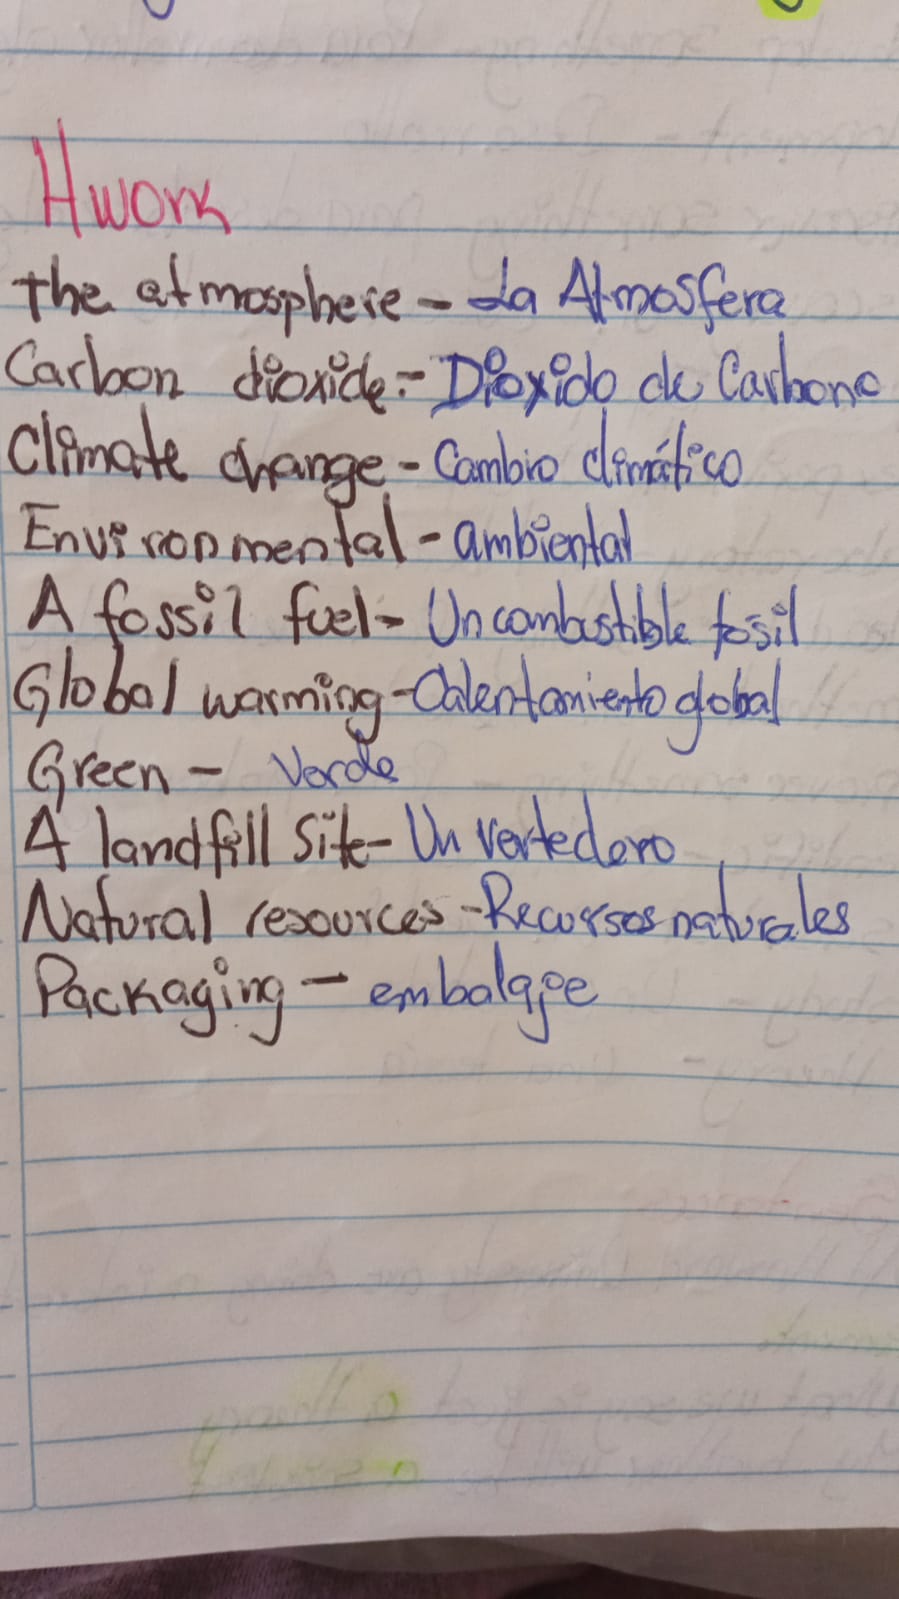 Hwork
the atmosphere - La Atmosfera
Carbon dioxide:- Dioxido de Carbono
Climate change - Cambio climático
Environmental - ambiental
A fossil fuel - Un combustible fosil
Global warming - Calentamiento global
Green - Verde
A landfill Site - Un vertedero
Natural resources - Recursos naturales
Packaging - embalaje